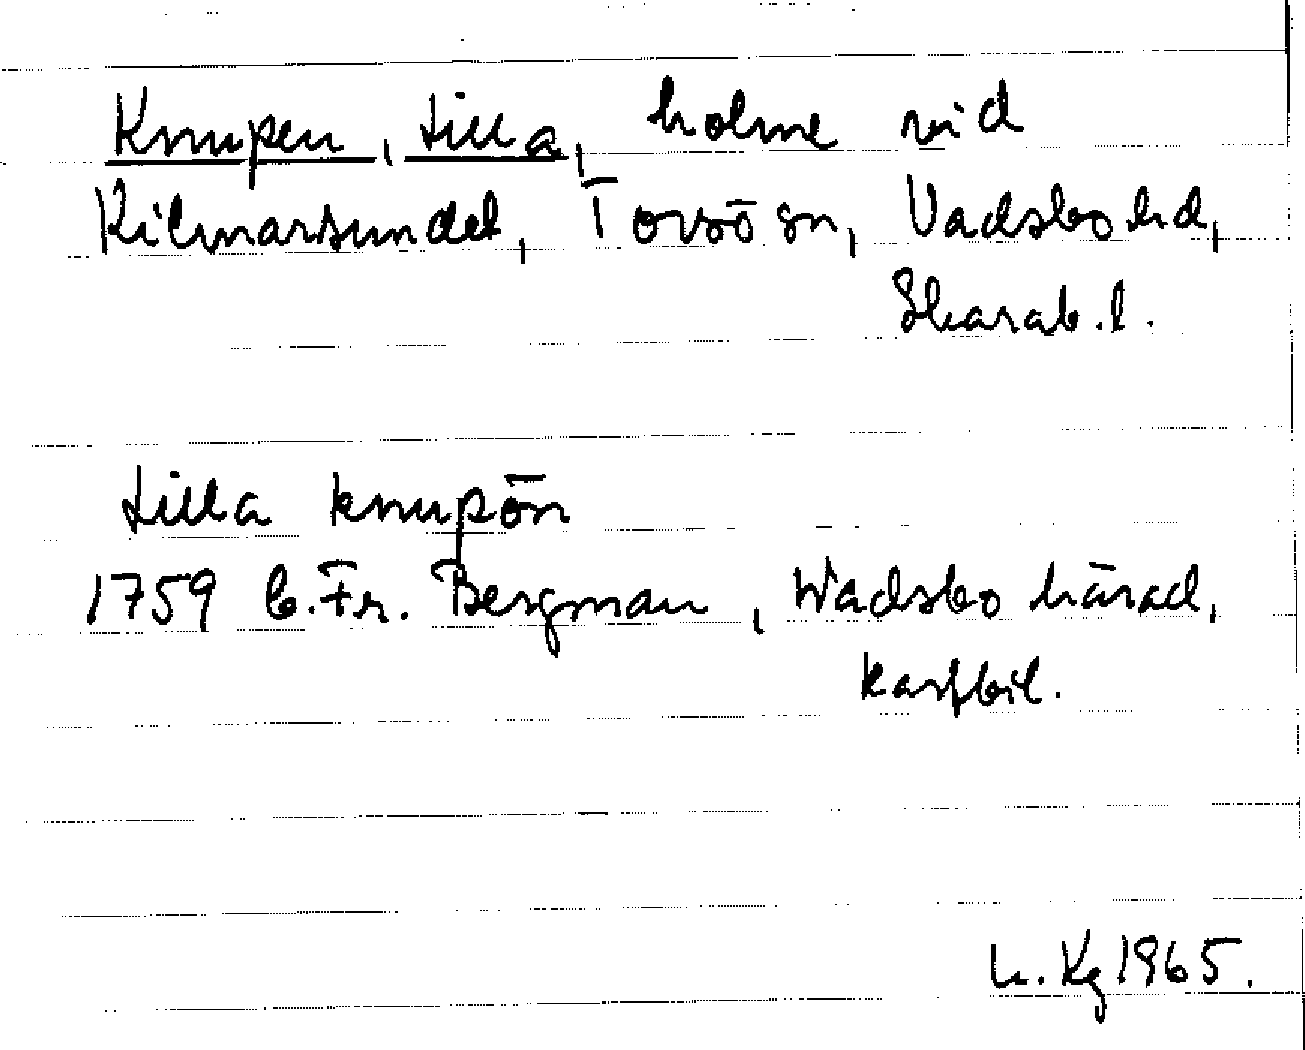 Knupen, Lilla, holme vid
Kilmarsundet, Torsö sn, Vadsbo hd,
Skarab. l.
Lilla knupön
1759 C. Fr. Bergman, Wadsbo härad,
kartbil.
L. Kg 1965.